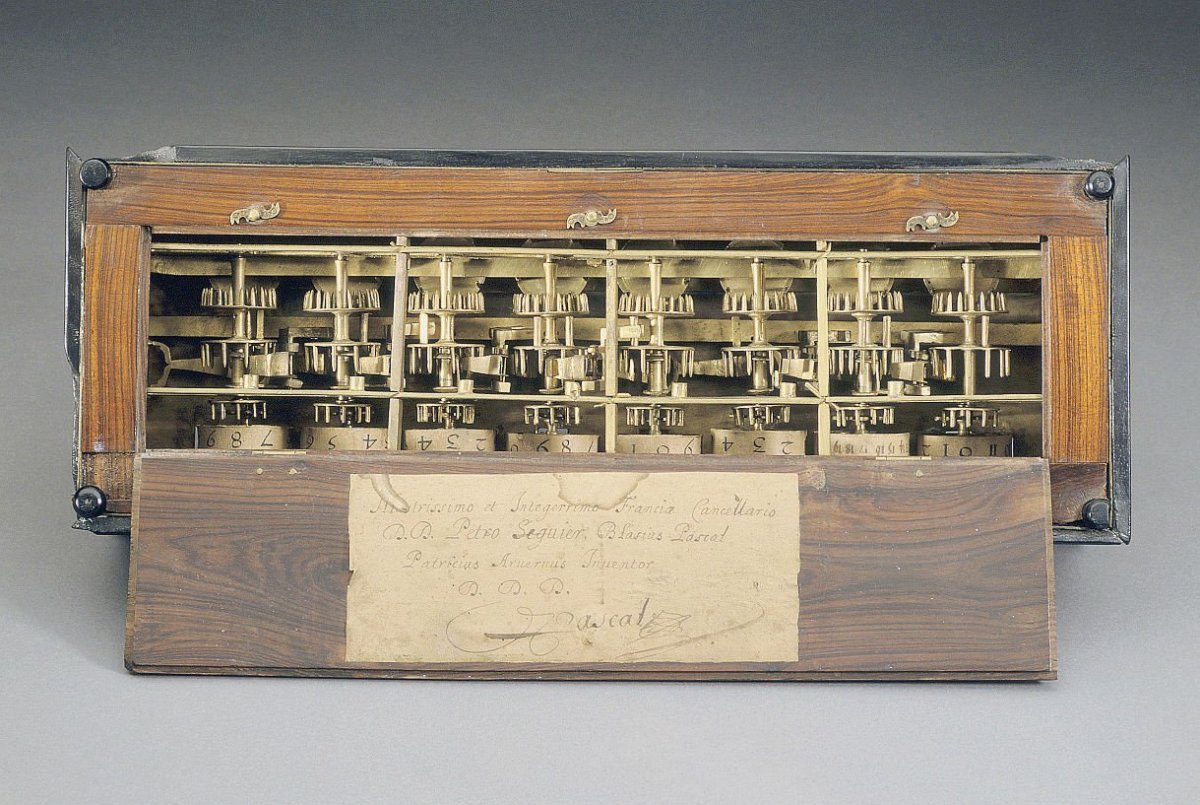 Illustrissimo et Integerrimo Franciæ Cancellario
D.D. Petro Seguier, Blasius Pascal
Patricius Arvernus Inventor
D. D. D.
Pascal
7 8 9
5 6
4
4
2 3 4
8 9
6 0 1
2 3 4
10 11